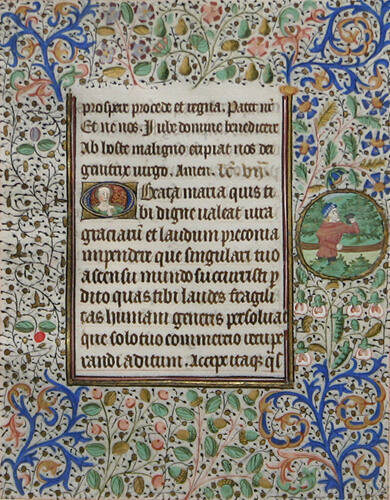 prospere procede et regna. Pater nr̃
Et ne nos. Jube domine benedicere
Ab hoste maligno eripiat nos dei
genitrix virgo. Amen.
O Beata maria quis ti
bi digne valeat iura
graciarũ et laudum preconia
impendere que singulari tuo
assensu mundo succurristi p
dito quas tibi laudes fragili
tas humani generis persoluat
que solo tuo comercio recupe
randi aditum. Accipe itaqꝫ q̃s